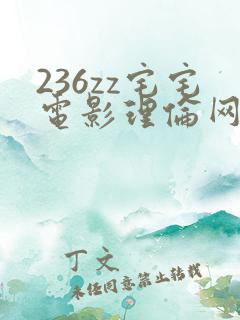 236zz宅宅
電影理倫网
丁文
未经同意禁止转载